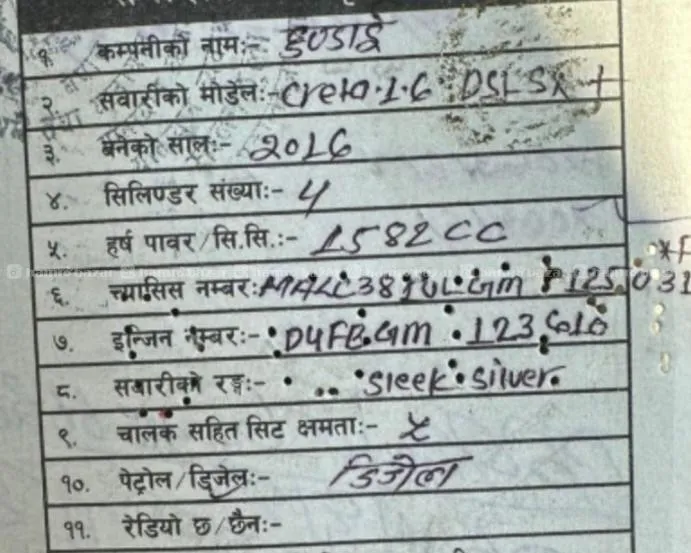 १. कम्पनीको नाम:- हुण्डाई
२. सवारीको मोडेल:- Creta.1.6 DSL SX +
३. बनेको साल:- 2016
४. सिलिण्डर संख्या:- 4
५. हर्ष पावर/सि.सि.:- 1582 CC
६. च्यासिस नम्बर:-
७. इन्जिन नम्बर:- D4FB.GM
८. सवारीको रङ्ग:- Sleek silver.
९. चालक सहित सिट क्षमता:- ५
१०. पेट्रोल/डिजेल:- डिजेल
११. रेडियो छ/छैन:-